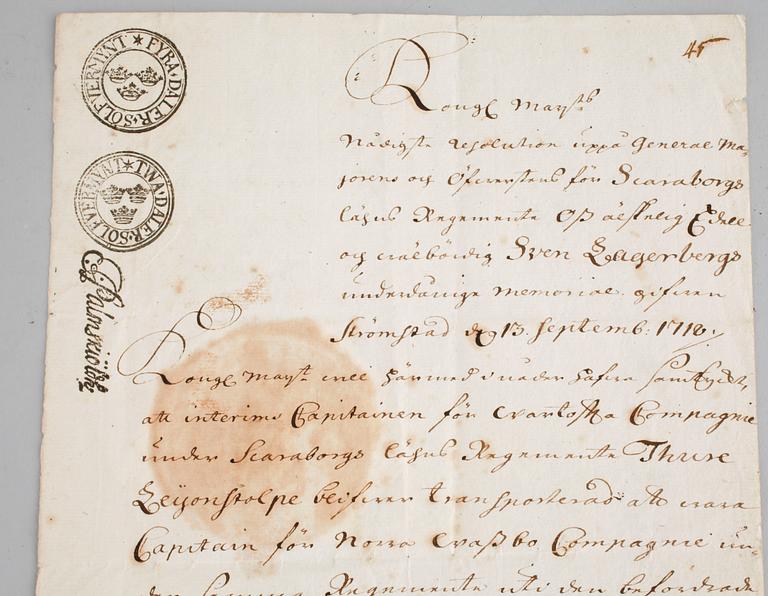 45
FYRA·DALER·SÖLFVERMYNT
TWA·DALER·SÖLFVERMYNT
Kongl Mayts
Nådigste resolution uppå General Ma-
jorens och Öfwerstens för Scaraborgs
läns Regemente
och wälbördig Sven Lagerbergs
underdånige memorial gifwen
Strömstad d 13. Septemb: 1718
Kongl Mayt will härmed i nåder hafwa samtyckt,
att interims Capitainen för Compagnie
under Scaraborgs läns Regemente Thure
Leijonstolpe blifwer transporterad att wara
Capitain för Norra Waßbo Compagnie un-
Regemente uti den befordrade